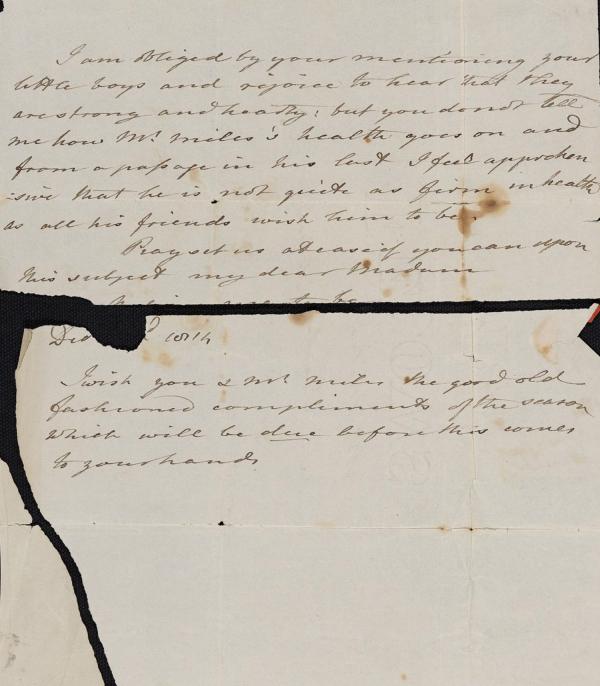 I am obliged by your mentioning your
little boys and rejoice to hear that they
are strong and hearty; but you do not tell
me how Mr. Miles's health goes on and
from a passage in his last I feel apprehen
:sive that he is not quite as firm in health
as all his friends wish him to be.
Pray set us at ease if you can upon
this subject my dear Madam
to be
I wish you & Mr. Miles the good old
fashioned compliments of the season
which will be due before this comes
to your hands